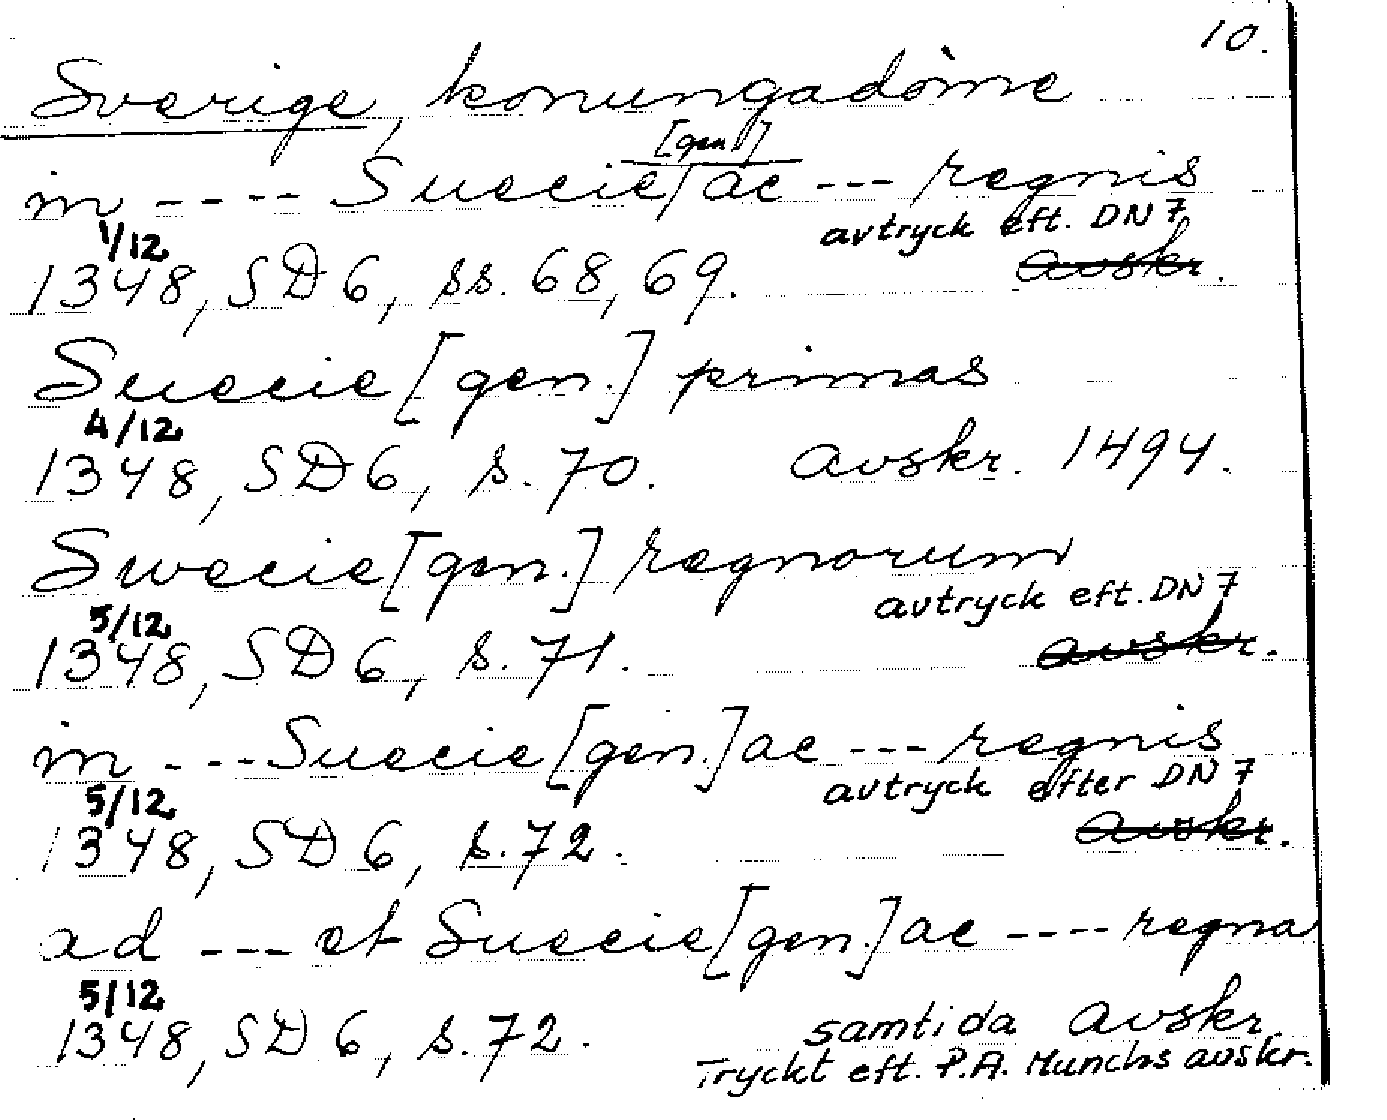 10.
Sverige, konungadöme
[gen.]
in ---- Suecie/ac --- regnis
avtryck eft. DN 7
1/12
1348, SD 6, ss. 68, 69. avskr.
Suecie [gen.] primas
4/12
1348, SD 6, s. 70. avskr. 1494.
Swecie [gen.] regnorum
avtryck eft. DN 7
5/12
1348, SD 6, s. 71. avskr.
in ---- Suecie [gen.] ac --- regnis
avtryck efter DN 7
5/12
1348, SD 6, s. 72. avskr.
ad --- et Suecie [gen.] ac ---- regna
5/12
1348, SD 6, s. 72. samtida avskr.
Tryckt eft. P.A. Munchs avskr.